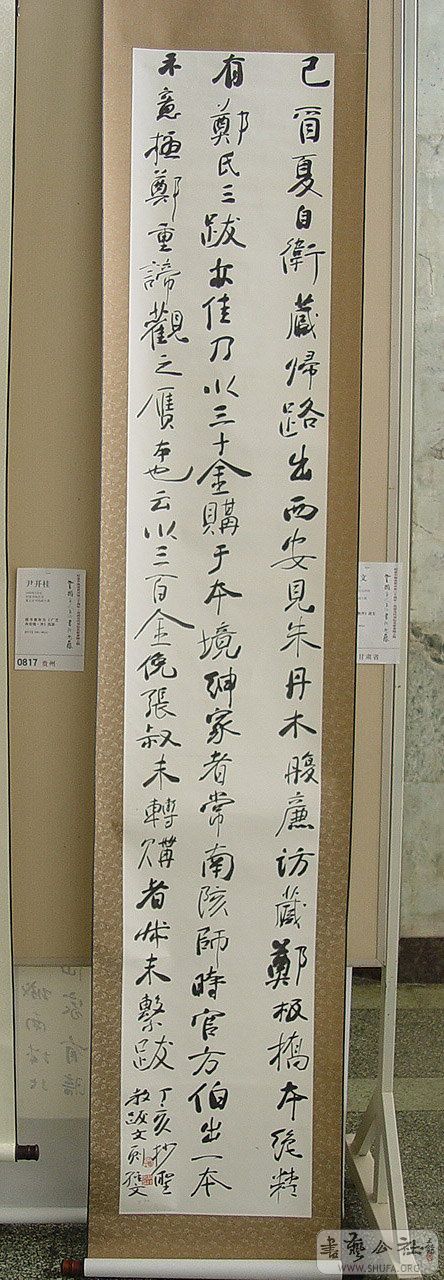 己酉夏自衛藏歸路出西安見朱丹木廉访藏鄭板橋本絶精
有鄭氏三跋佳乃以三十金購于本境紳家者常南陔師時官方伯出一本
意極鄭重諦觀之贋本也云以三百金張叔未轉購者未繫跋
丁亥抄聖
教跋文
尹开桂
0817 贵州
文
甘肃省
書藝公社
WWW.SHUFA.ORG